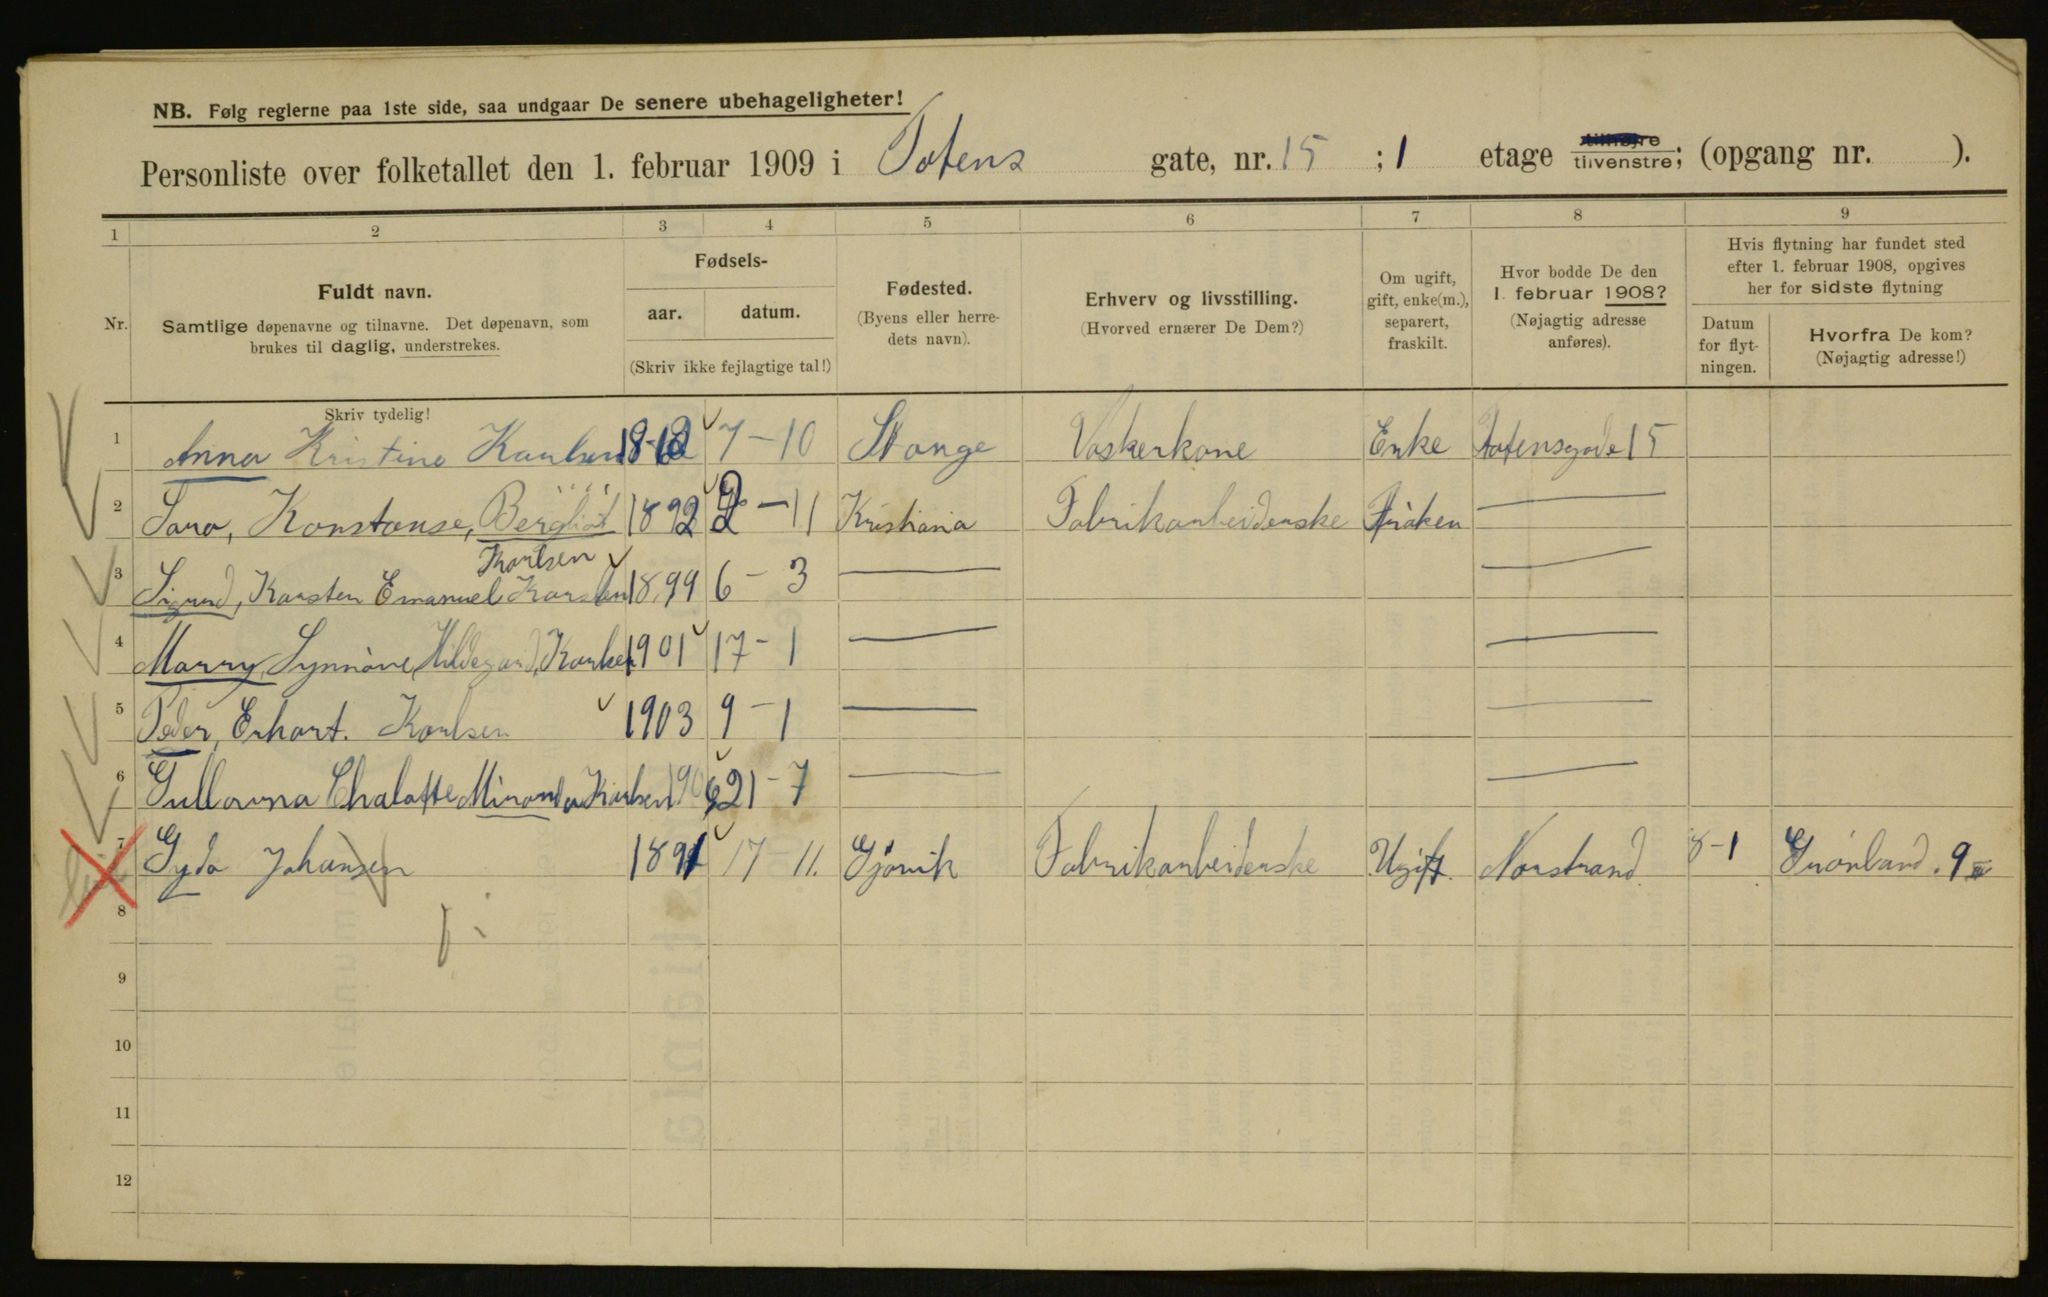 NB. Følg reglerne paa 1ste side, saa undgaar De senere ubehageligheter!
Personliste over folketallet den 1. februar 1909 i Totens gate, nr. 15 ; 1 etage tilhøjre tilvenstre; (opgang nr. ).
1 2 3 4 5 6 7 8 9
Nr.
Fuldt navn.
Samtlige døpenavne og tilnavne. Det døpenavn, som
brukes til daglig, understrekes.
Skriv tydelig!
Fødsels-
aar. datum.
(Skriv ikke fejlagtige tal!)
Fødested.
(Byens eller herre-
dets navn).
Erhverv og livsstilling.
(Hvorved ernærer De Dem?)
Om ugift,
gift, enke(m.),
separert,
fraskilt.
Hvor bodde De den
1. februar 1908?
(Nøjagtig adresse
anføres).
Hvis flytning har fundet sted
efter 1. februar 1908, opgives
her for sidste flytning
Datum
for flyt-
ningen.
Hvorfra De kom?
(Nøjagtig adresse!)
1 Anna Kristine Karlsen 7-10 Stange Vaskerkone Enke Totensgade 15
2 Sara, Konstanse, Bergliot Karlsen 1892 2-11 Kristiania Fabrikarbeiderske Frøken —
3 Sigurd, Karsten Emanuel Karlsen 1899 6-3 — —
4 Marry, Synnöve, Hildegard, Karlsen 1901 17-1 — —
5 Peder, Erhart. Karlsen 1903 9-1 — —
6 Gullovna Chalotte Miranda Karlsen 1906 21-7 — —
7 Gyda Johansen 1891 17-11. Gjövik Fabrikarbeiderske Ugift. Norstrand 8-1 Grönland. 9
8
9
10
11
12